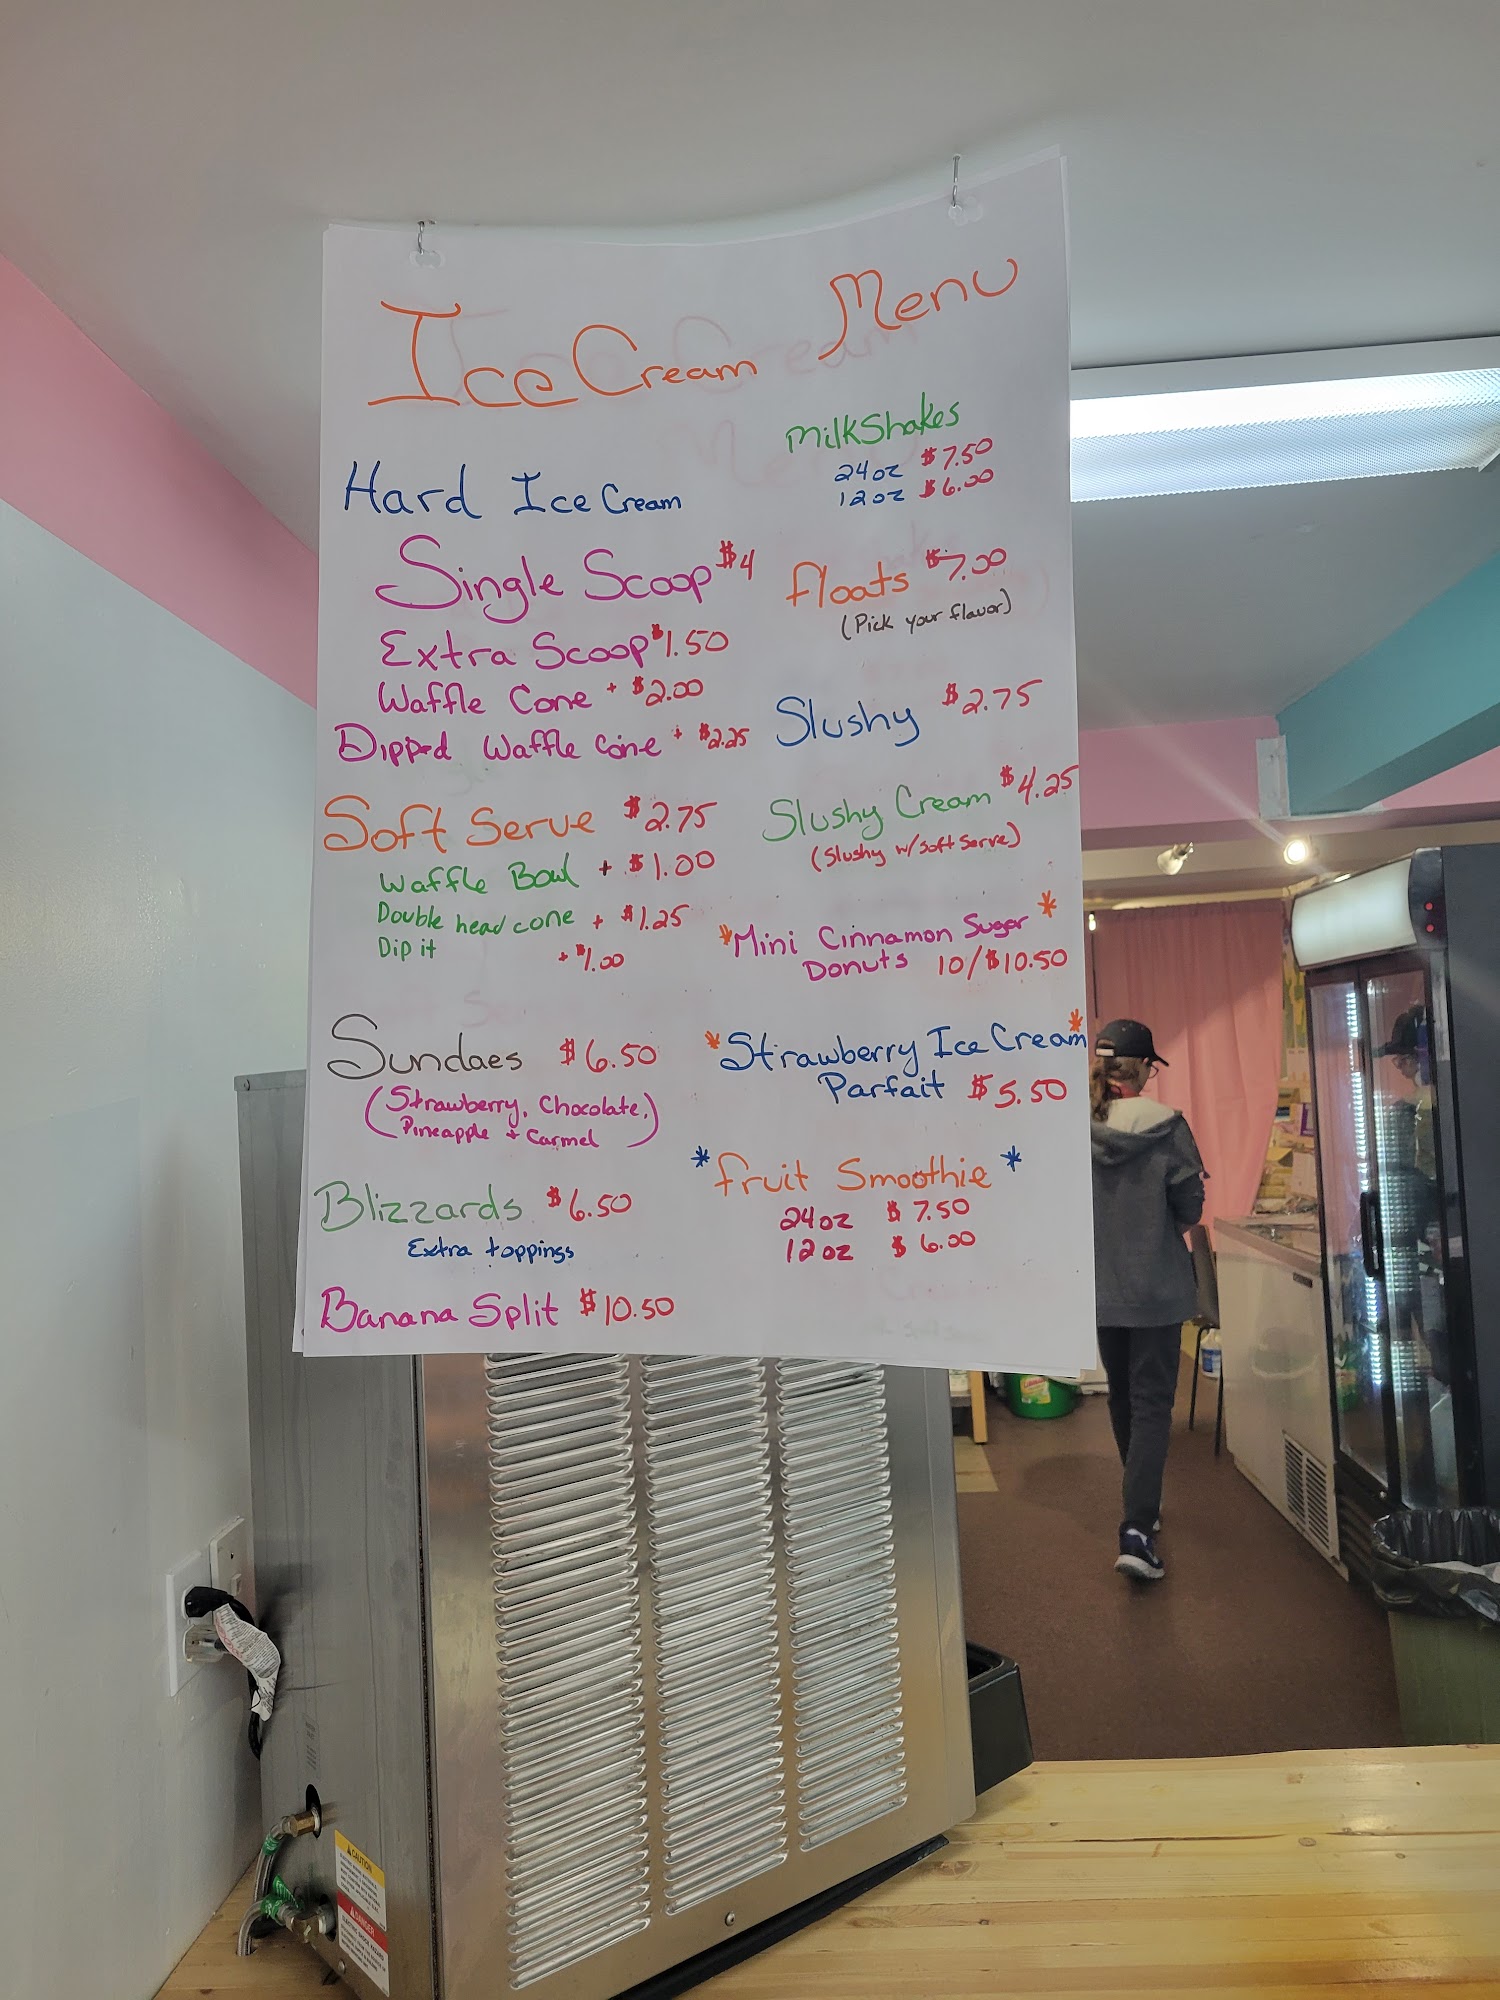 Ice Cream Menu
Hard Ice Cream
Single Scoop $4
Extra Scoop $1.50
Waffle Cone + $2.00
Dipped Waffle Cone + $2.25
Soft Serve $2.75
Waffle Bowl + $1.00
Double head cone + $1.25
Dip it + $1.00
Sundaes $6.50
(Strawberry, Chocolate,
Pineapple + Carmel)
Blizzards $6.50
Extra toppings
Banana Split $10.50
MilkShakes
24oz $7.50
12oz $6.00
floats $7.00
(Pick your flavor)
Slushy $2.75
Slushy Cream $4.25
(Slushy w/Soft Serve)
*Mini Cinnamon Sugar*
Donuts 10/$10.50
*Strawberry Ice Cream*
Parfait $5.50
*fruit Smoothie*
24oz $7.50
12oz $6.00
CAUTION
DANGER